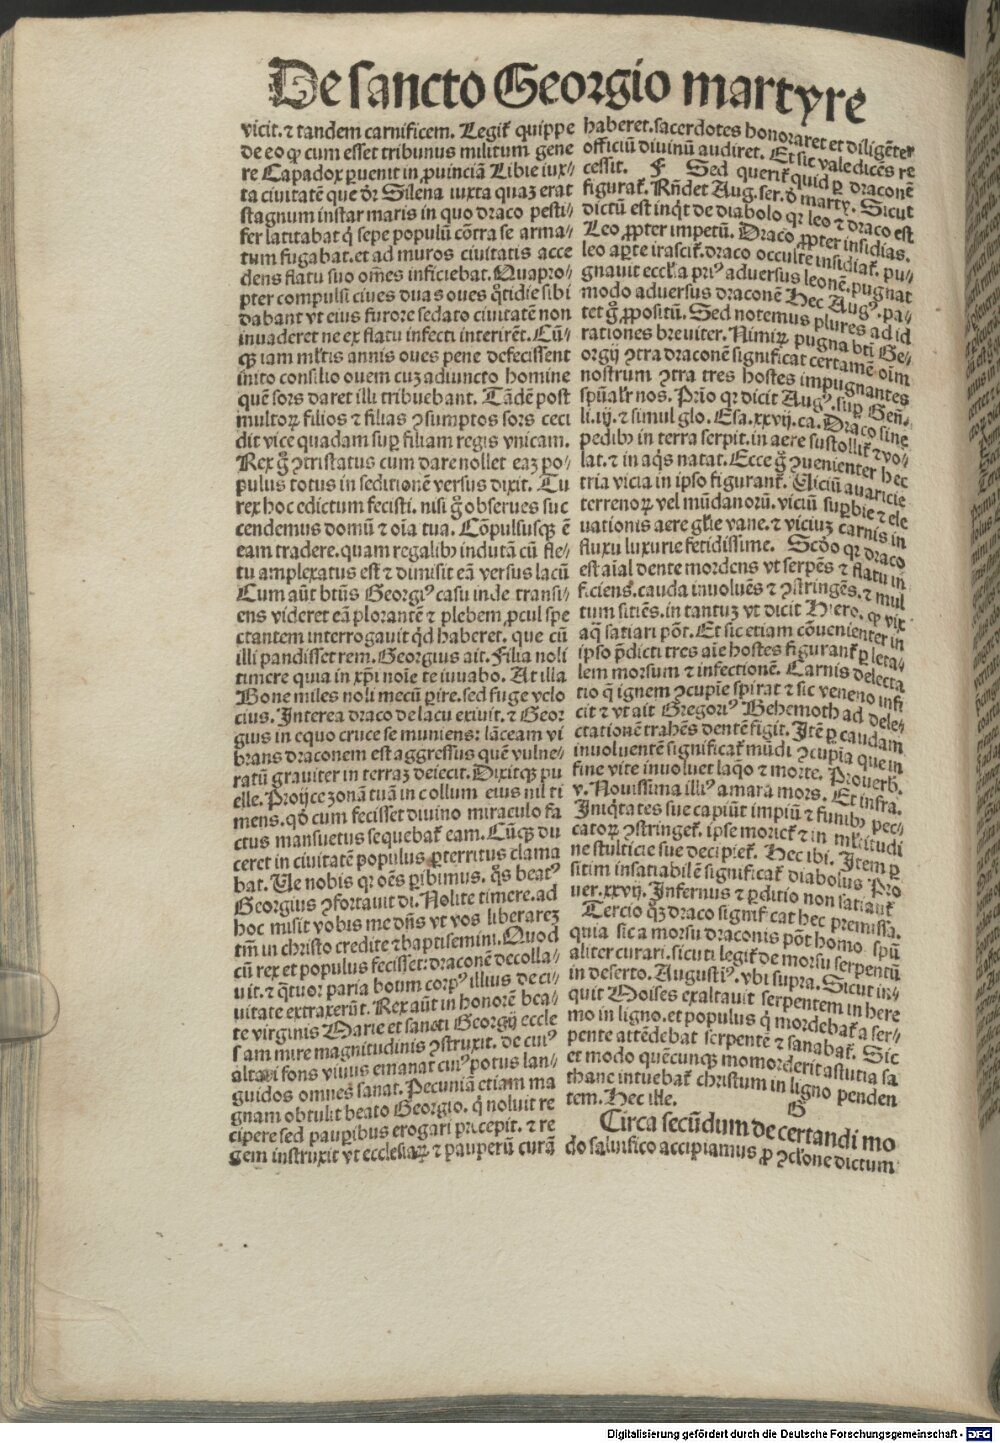 De sancto Georgio martyre
vicit. ⁊ tandem carnificem. Legit᷑ quippe
de eo ꝙ cum esset tribunus militum gene
re Capadox ꝑuenit in ꝓuinciā Libie iux⸗
ta ciuitatē que dr̄ Silena iuxta quaꝫ erat
stagnum instar maris in quo draco pesti⸗
fer latitabat q̇ sepe populū cōtra se arma⸗
tum fugabat. et ad muros ciuitatis acce
dens flatu suo om̄es inficiebat. Quapro⸗
pter compulsi ciues duas oues q̊tidie sibi
dabant vt eius furore sedato ciuitatē non
inuaderet ne ex flatu infecti interirēt. Cū⸗
qꝫ iam ml̓tis annis oues pene defecissent
inito consilio ouem cuꝫ adiuncto homine
quē sors daret illi tribuebant. Tādē post
multoꝝ filios ⁊ filias ꝯsumptos sors ceci
dit vice quadam suꝑ filiam regis vnicam.
Rex g̊ ꝯtristatus cum dare nollet eaꝫ po⸗
pulus totus in seditionē versus dixit. Tu
rex hoc edictum fecisti. nisi g̊ obserues suc
cendemus domū ⁊ oīa tua. Cōpulsusqꝫ ē
eam tradere. quam regalibꝰ indutā cū fle⸗
tu amplexatus est ⁊ dimisit eā versus lacū
Cum aūt btūs Georgiꝰ casu inde transi⸗
ens videret eā plorantē ⁊ plebem ꝓcul spe
ctantem interrogauit qd̓ haberet. que cū
illi pandisset rem. Georgius ait. Filia noli
timere quia in xp̄i noīe te iuuabo. At illa
Bone miles noli mecū ꝑire. sed fuge velo
cius. Interea draco de lacu exiuit. ⁊ Geor
gius in equo cruce se muniens: lāceam vi
brans draconem est aggressus quē vulne⸗
ratū grauiter in terraꝫ deiecit. Dixitqꝫ pu
elle. Proijce zonā tuā in collum eius nil ti
mens. qd̓ cum fecisset diuino miraculo fa
ctus mansuetus sequebat᷑ eam. Cūqꝫ du
ceret in ciuitatē populus ꝑterritus clama
bat. Ue nobis qr oēs ꝑibimus. q̊s beatꝰ
Georgius ꝯfortauit di. Nolite timere. ad
hoc misit vobis me dn̄s vt vos liberareꝫ
tm̄ in christo credite ⁊ baptisemini. Quod
cū rex et populus fecisset: draconē decolla⸗
uit. ⁊ q̊tuor paria boum corpꝰ illius de ci⸗
uitate extraxerūt. Rex aūt in honorē bea⸗
te virginis Marie et sancti Georgij eccle
siam mire magnitudinis ꝯstruxit. de cuiꝰ
altari fons viuus emanat cuiꝰ potus lan⸗
guidos omnes sanat. Pecuniā etiam ma
gnam obtulit beato Georgio. q̇ noluit re
cipere sed pauꝑibus erogari precepit. ⁊ re
gem instruxit vt ecclesiaꝝ ⁊ pauperū curā
haberet. sacerdotes honoraret et diligēter
officiū diuinū audiret. Et sic vale dicēs re
cessit. F Sed querit᷑ quid ꝑ draconē
figurat᷑. Rn̄det Aug. ser. d̓ marty. Sicut
dictū est inq̇t de diabolo qr leo ⁊ draco est
Leo ꝓpter impetū. Draco ꝓpter insidias.
leo aꝑte irascit᷑. draco occulte insidiat᷑. pu⸗
gnauit eccl̓ia priꝰ aduersus leonē. pugnat
modo aduersus draconē Hec Augꝰ. pa⸗
tet g̊ ꝓpositū. Sed notemus plures ad id
rationes breuiter. Nimiꝝ pugna bti̅ Ge⸗
orgij ꝯtra draconē significat certamē oīm
nostrum ꝯtra tres hostes impugnantes
spūalr̓ nos. Prīo qr dicit Augꝰ. suꝑ Gen̄.
li. iij. ⁊ simul glo. Esa. xxvij. ca. Draco sine
pedibꝰ in terra serpit. in aere sustollit᷑ ⁊ vo⸗
lat. ⁊ in aq̇s natat. Ecce g̊ ꝯuenienter hec
tria vicia in ipso figurant᷑. Uiciū auaricie
terrenoꝝ vel mūdanorū. viciū suꝑbie ⁊ ele
uationis aere gl̓ie vane. ⁊ viciuꝫ carnis in
fluxu luxurie fetidissime. Scd̓o qr draco
est aīal dente mordens vt serpēs ⁊ flatu in
ficiens. cauda inuoluēs ⁊ ꝯstringēs. ⁊ mul
tum sitiēs. in tantuꝫ vt dicit Hiero. ꝙ vix
aq̇ satiari pōt. Et sic etiam cōuenienter in
ipso p̄dicti tres aīe hostes figurant᷑ ꝑ leta⸗
lem morsum ⁊ infectionē. Carnis delecta
tio q̄ ignem ꝯcupīe spirat ⁊ sic veneno infi
cit ⁊ vt ait Gregoriꝰ Behemoth ad dele⸗
ctationē trahēs dentē figit. Itē ꝑ caudam
inuoluentē significat᷑ mūdi ꝯcupīa que in
fine vite inuoluet laq̊o ⁊ morte. Prouerb.
v. Nouissima illiꝰ amara mors. Et infra.
Iniq̇tates sue capiūt impiū ⁊ funibꝰ pec⸗
catoꝝ ꝯstringet᷑. ipse moriet᷑ ⁊ in ml̓titudi
ne stulticie sue decipiet᷑. Hec ibi. Item ꝑ
sitim insatiabilē significat᷑ diabolus Pro
uer. xxvij. Infernus ⁊ ꝑditio non satiant᷑
Tercio q̊ꝫ draco significat hec premissa.
quia sic a morsu draconis pōt homo spū
aliter curari. sicuti legit᷑ de morsu serpentū
in deserto. Augustiꝰ. vbi supra. Sicut in⸗
quit Moises exaltauit serpentem in here
mo in ligno. et populus q̇ mordebat᷑ a ser⸗
pente attēdebat serpentē ⁊ sanabat᷑. Sic
et modo quēcunqꝫ momorderit astutia sa
thane intuebat᷑ christum in ligno penden
tem. Hec ille. G
Circa secūdum de certandi mo
do saluifico accipiamus ꝓ ꝯcl̓one dictum
Digitalisierung gefördert durch die Deutsche Forschungsgemeinschaft - DFG